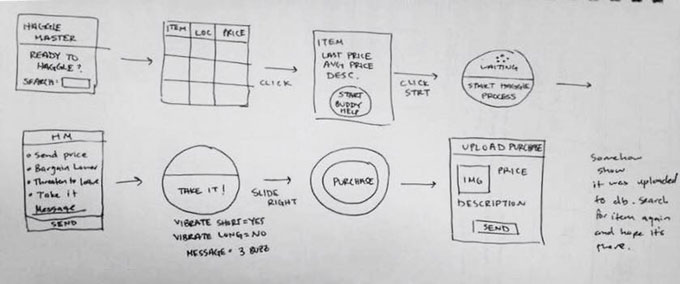 HAGGLE
MASTER
READY TO
HAGGLE?
SEARCH:
ITEM LOC PRICE
CLICK
ITEM
LAST PRICE
AVG PRICE
DESC.
START
BUDDY
HELP
CLICK
STRT
WAITING
START HAGGLE
PROCESS
HM
• Send price
• Bargain Lower
• Threaten to leave
• Take it
Message
SEND
TAKE IT!
VIBRATE SHORT=YES
VIBRATE LONG=NO
MESSAGE = 3 BUZZ
SLIDE
RIGHT
PURCHASE
UPLOAD PURCHASE
IMG PRICE
DESCRIPTION
SEND
Somehow
show
it was uploaded
to db. search
for item again
and hope it's
there.